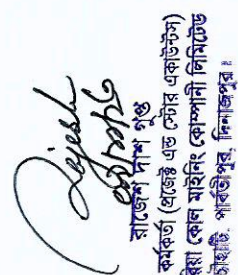 Rajesh
রাজেশ দাশ গুপ্ত
কর্মকর্তা (প্রজেক্ট এন্ড স্টোর একাউন্টস)
কোল মাইনিং কোম্পানী লিমিটেড
পার্বতীপুর, দিনাজপুর।